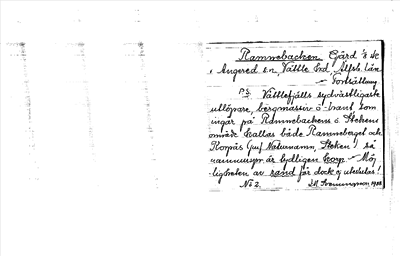 Ramnebacken. Gård
i Angered sn, Vättle hd, Älfsb. län
Fortsättning
P.S. Vättlefjälls sydvästligaste
utlöpare, bergmassiv o. brant som
ingår på Ramnebackens o. Stekens
område kallas både Ramneberget och
Korpås (jmf Naturnamn, Steken)! så
ramnussyn. är tydligen korp. - Möj-
ligheten av rand får dock ej uteslutas!
No 2.